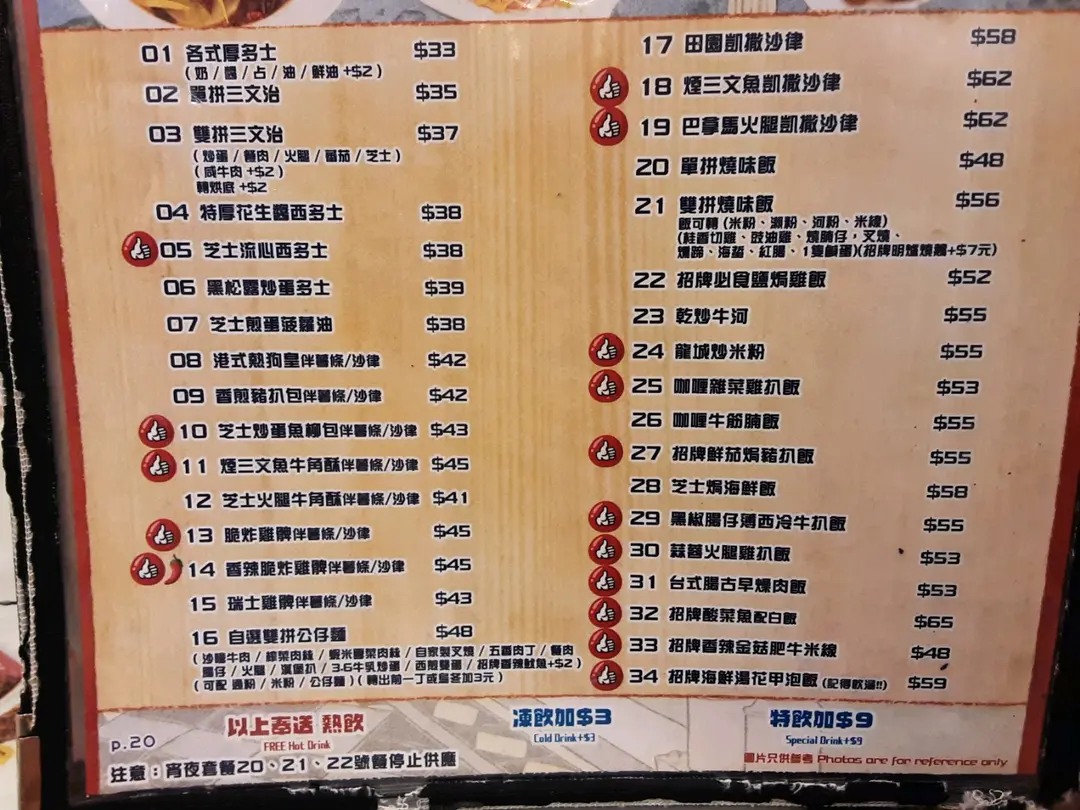 01 各式厚多士 $33
(奶/醬/占/油/鮮油+$2)
02 單拼三文治 $35
03 雙拼三文治 $37
(炒蛋/餐肉/火腿/蕃茄/芝士)
(咸牛肉+$2)
轉烘底+$2
04 特厚花生醬西多士 $38
05 芝士流心西多士 $38
06 黑松露炒蛋多士 $39
07 芝士煎蛋菠蘿油 $38
08 港式熱狗皇伴薯條/沙律 $42
09 香煎豬扒包伴薯條/沙律 $42
10 芝士炒蛋魚柳包伴薯條/沙律 $43
11 煙三文魚牛角酥伴薯條/沙律 $45
12 芝士火腿牛角酥伴薯條/沙律 $41
13 脆炸雞髀伴薯條/沙律 $45
14 香辣脆炸雞髀伴薯條/沙律 $45
15 瑞士雞髀伴薯條/沙律 $43
16 自選雙拼公仔麵 $48
(沙嗲牛肉/榨菜肉絲/雪菜肉絲/自家製叉燒/五香肉丁/餐肉
腸仔/火腿/漢堡扒/3.6牛乳炒蛋/西煎雙蛋/招牌香辣魷魚+$2)
(可配 通粉/米粉/公仔麵)(轉出前一丁或烏冬加3元)
17 田園凱撒沙律 $58
18 煙三文魚凱撒沙律 $62
19 巴拿馬火腿凱撒沙律 $62
20 單拼燒味飯 $48
21 雙拼燒味飯 $56
飯可轉(米粉、瀨粉、河粉、米線)
(桂香切雞、豉油雞、燒腩仔,叉燒、
燻蹄、海蜇、紅腸、1隻鹹蛋)(招牌明爐燒鵝+$7元)
22 招牌必食鹽焗雞飯 $52
23 乾炒牛河 $55
24 龍城炒米粉 $55
25 咖喱雜菜雞扒飯 $53
26 咖喱牛筋腩飯 $55
27 招牌鮮茄焗豬扒飯 $55
28 芝士焗海鮮飯 $58
29 黑椒腸仔薄西冷牛扒飯 $55
30 蒜蓉火腿雞扒飯 $53
31 台式腸古早燥肉飯 $53
32 招牌酸菜魚配白飯 $65
33 招牌香辣金菇肥牛米線 $48
34 招牌海鮮湯花甲泡飯(記得飲湯!!) $59
以上奉送 熱飲
FREE Hot Drink
凍飲加$3
Cold Drink+$3
特飲加$9
Special Drink+$9
p.20
注意:宵夜套餐20、21、22號餐停止供應
圖片只供參考 Photos are for reference only